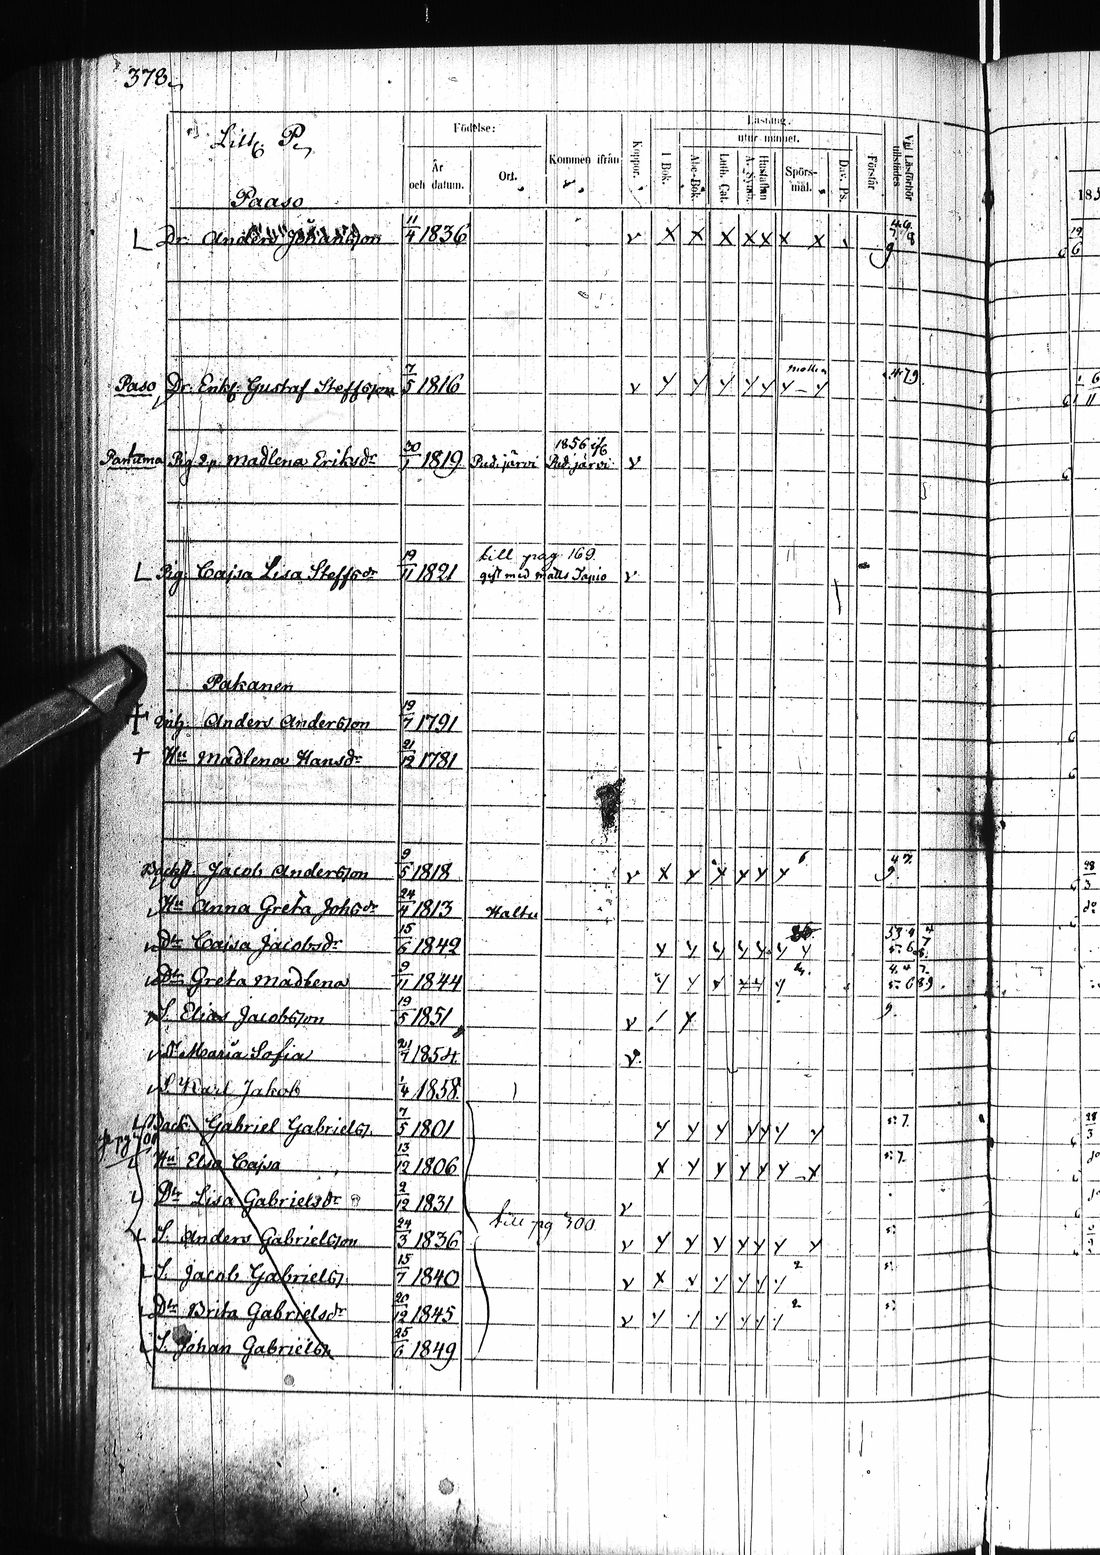 378.
Litt. P.
Födelse:
År och datum.
Ort.
Kommen ifrån
Koppor.
Läsning.
utur minnet.
I Bok.
Abc-Bok.
Luth. Cat.
Hustaflan
A. Symb.
Spörs-mål.
Dav. Ps.
Förstår
Vid Läsförhör tillstädes
185
Paaso
Dr. Anders Johansson 11/4 1836 v x x x x x x x
Paso Dr. Erik Gustaf Steffsson 7/5 1816 v
Pantuma Pig. Madlena Eriksdr 30/1 1819 Pud. järvi 1856 Pud. järvi v
till pag 169
Pig. Cajsa Lisa Steffsdr 19/11 1821 gift med Matts Tapio v
Pakanen
Inh. Anders Andersson 19/7 1791
Hu Madlena Hansdr 21/12 1781
Backst. Jacob Andersson 9/5 1818 v
Hu Anna Greta Johsdr 24/4 1813 Haltu
Dtr Cajsa Jacobsdr 15/6 1842
Dtr Greta Madlena 9/11 1844
S. Elias Jacobsson 19/5 1851 v
Dr Maria Sofia 21/7 1854 v
S. Karl Jakob 1/4 1858
Back. Gabriel Gabriels. 7/5 1801
pg 700
Hu Elsa Cajsa 13/12 1806
Dtr Lisa Gabrielsdr 2/12 1831 v
till pg 700
S. Anders Gabrielsson 24/3 1836 v
S. Jacob Gabriels. 15/7 1840 v
Dtr Brita Gabrielsdr 20/12 1845 v
S. Johan Gabriels. 25/6 1849